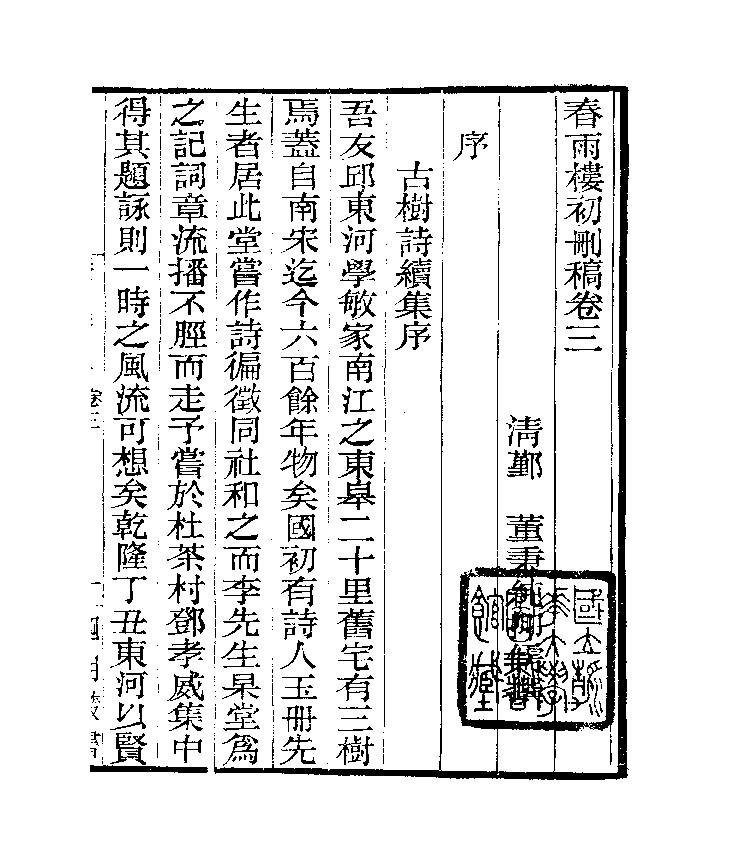 春雨樓初刪稿卷三
清鄞　董秉純
序
古樹詩續集序
吾友邱東河學敏家南江之東皋二十里舊宅有三樹
焉蓋自南宋迄今六百餘年物矣國初有詩人玉冊先
生者居此堂嘗作詩徧徵同社和之而李先生杲堂爲
之記詞章流播不脛而走予嘗於杜茶村鄧孝威集中
得其題詠則一時之風流可想矣乾隆丁丑東河以賢